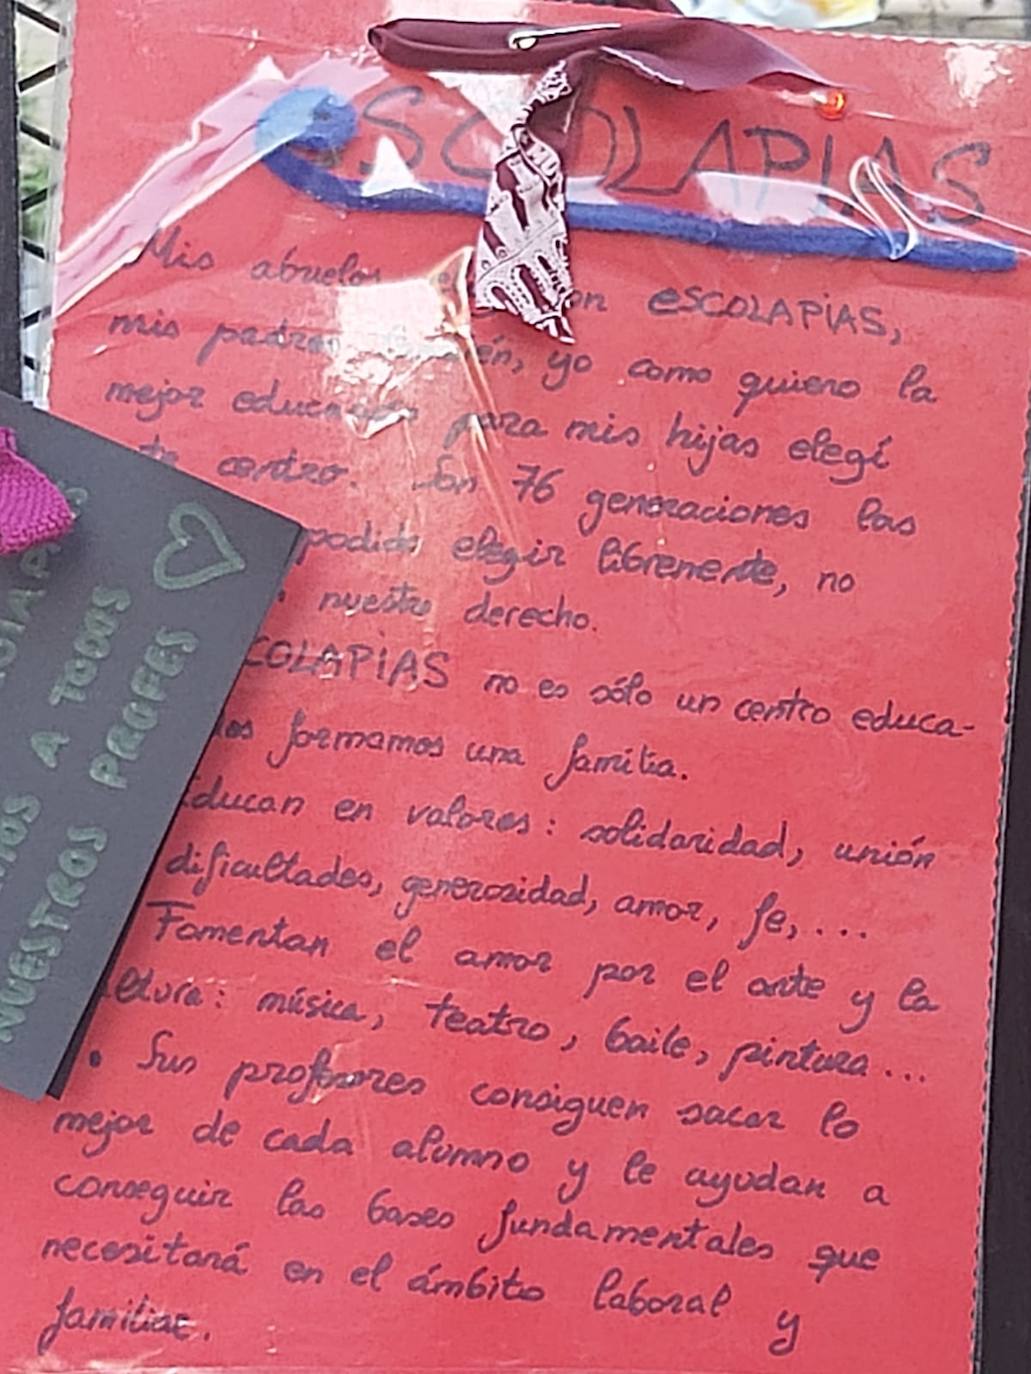 ESCOLAPIAS
Mis abuelos eligieron ESCOLAPIAS,
mis padres también, yo como quiero la
mejor educación para mis hijas elegí
este centro. Son 76 generaciones las
podido elegir libremente, no
nuestro derecho.
ESCOLAPIAS no es sólo un centro educa-
formamos una familia.
Educan en valores: solidaridad, unión
dificultades, generosidad, amor, fe,....
Fomentan el amor por el arte y la
cultura: música, teatro, baile, pintura...
• Sus profesores consiguen sacar lo
mejor de cada alumno y le ayudan a
conseguir las bases fundamentales que
necesitará en el ámbito laboral y
familiar.
A TODOS
NUESTROS PROFES